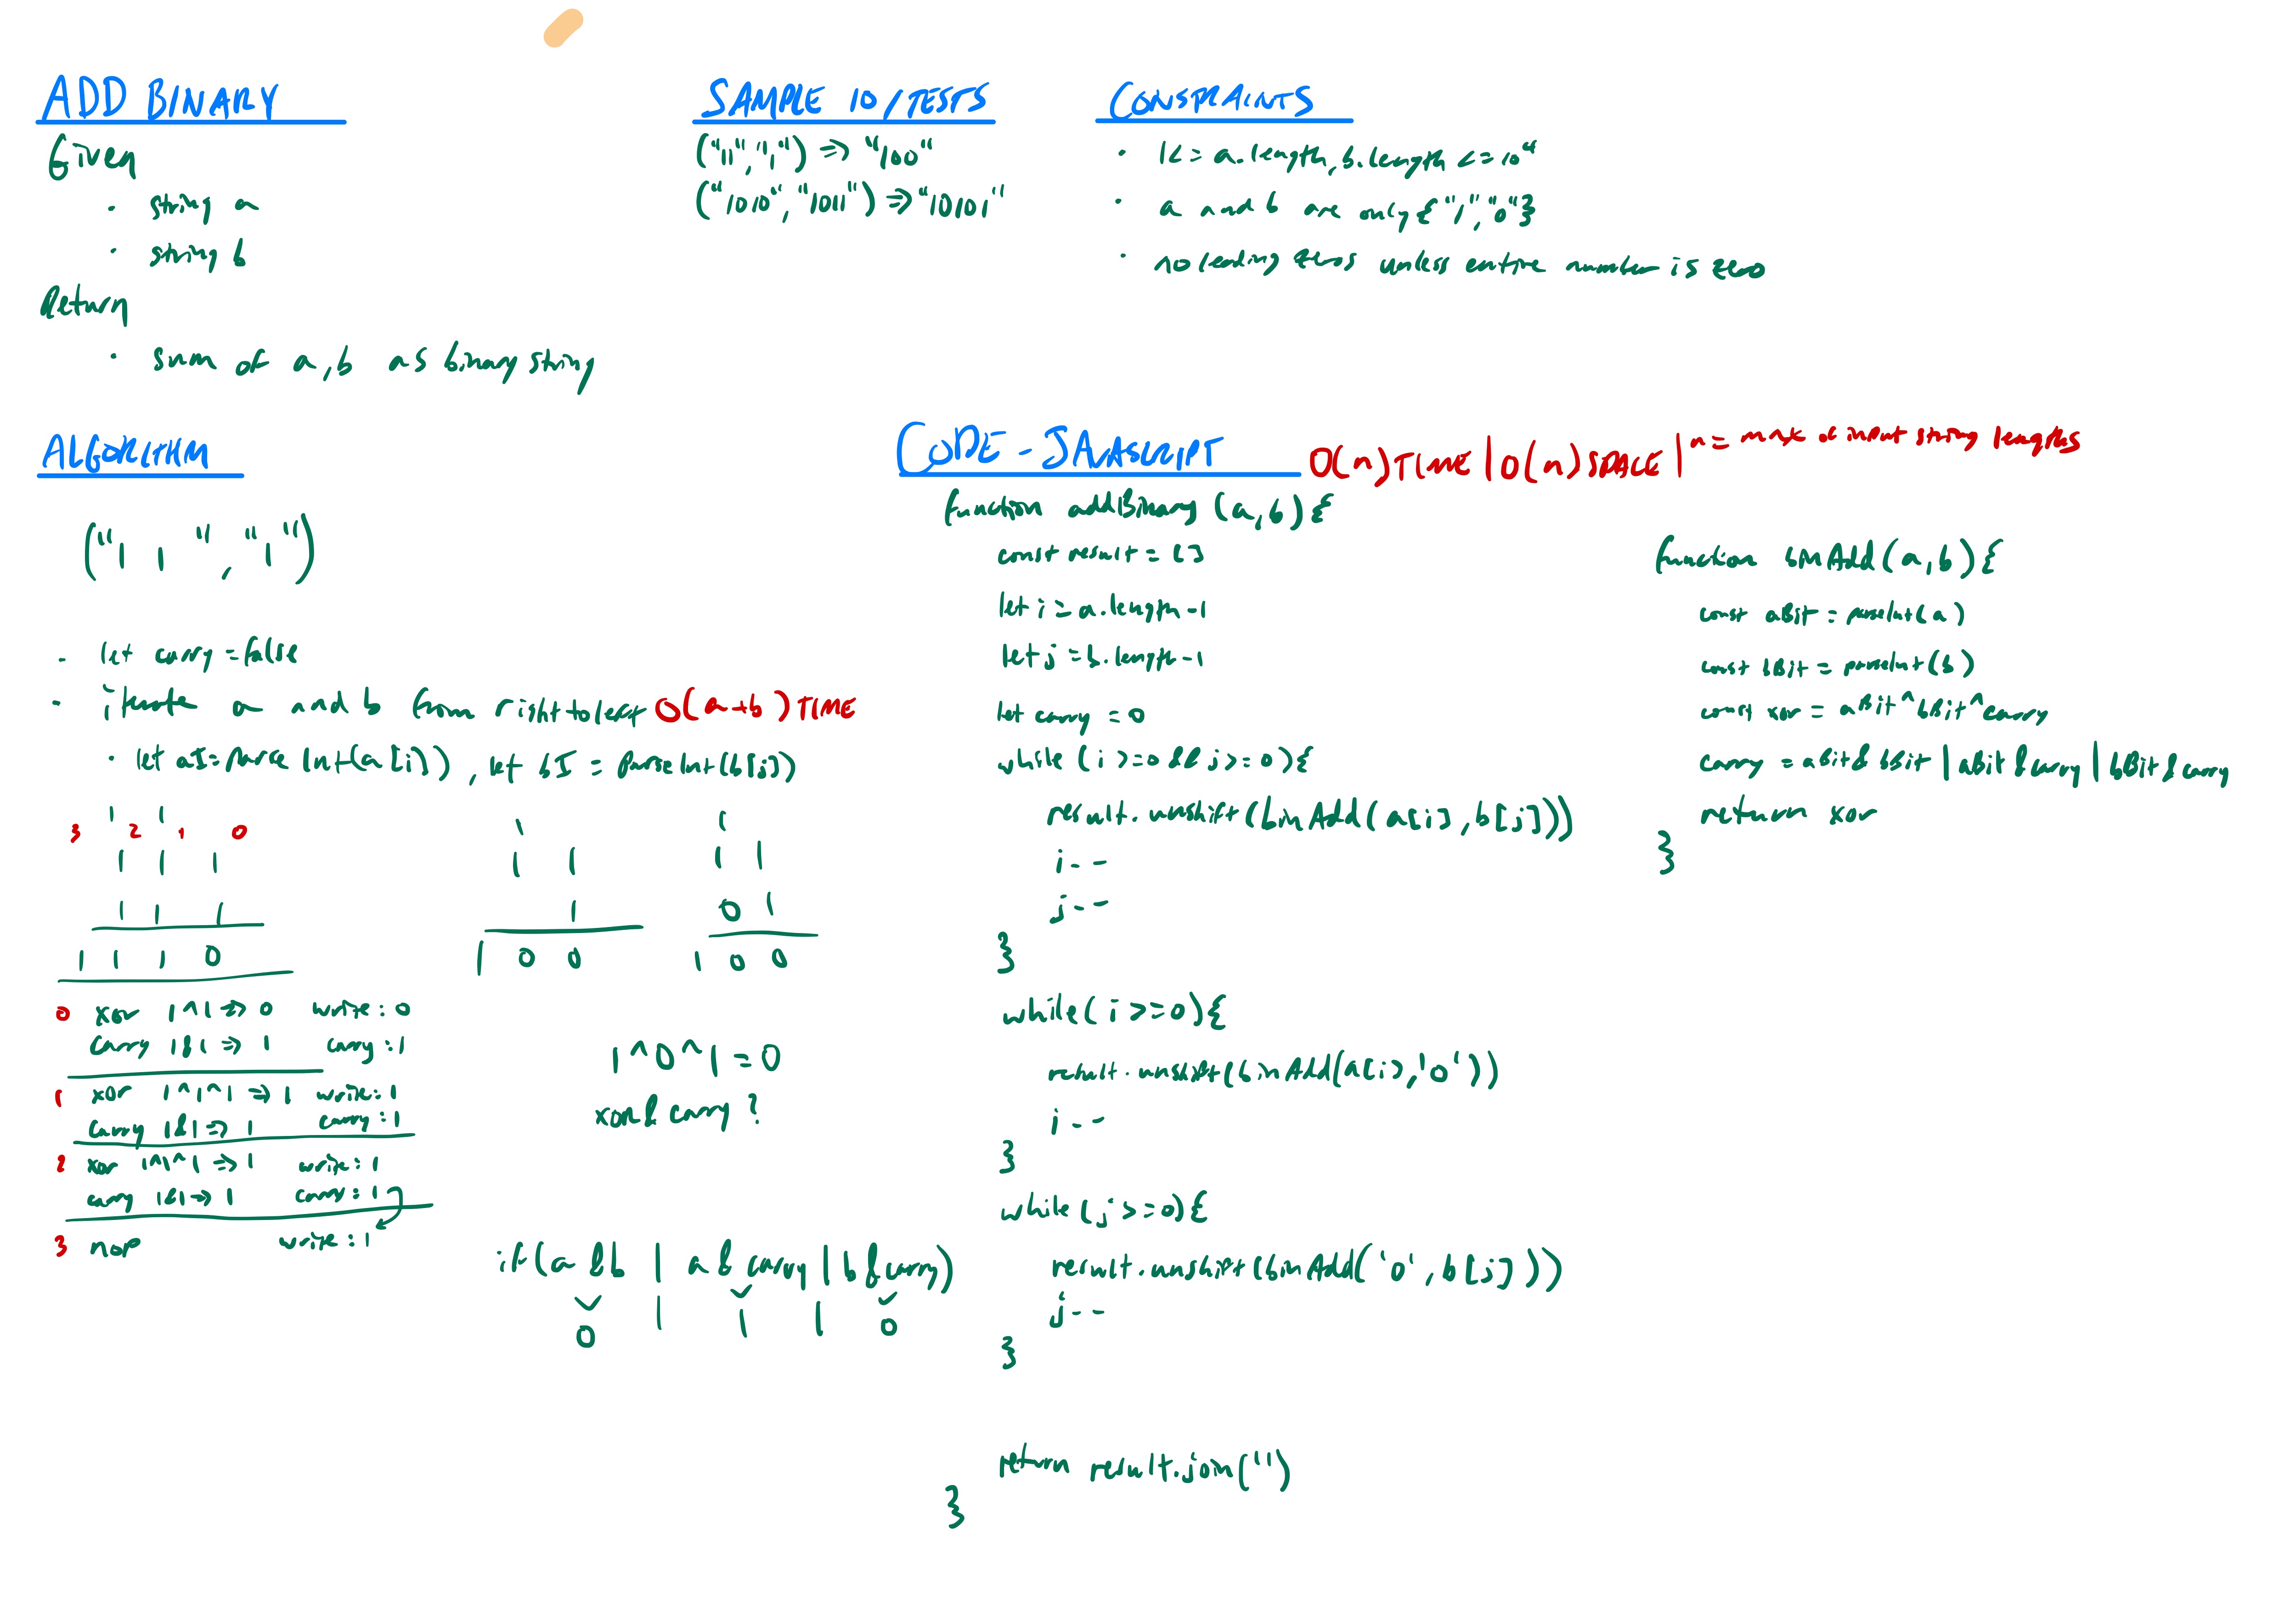 ADD BINARY
Given
· string a
· string b
Return
· sum of a, b as binary string
SAMPLE IO/TESTS
("11","1") => "100"
("1010","1011") => "10101"
CONSTRAINTS
· 1<= a.length, b.length <= 10^4
· a and b are only {"1","0"}
· no leading zeros unless entire number is zero
ALGORITHM
("1 1","1")
- let carry = false
· iterate a and b from right to left O(a+b) TIME
· let aI = ParseInt(a[i]), let bI = ParseInt(b[j])
1 1
3 2 1 0
1 1 1
1 1 1
1 1 1 0
1
1 1
1
1 0 0
1
1 1
0 1
1 0 0
0 xor 1^1 => 0 write: 0
carry 1&1 => 1 carry: 1
1 xor 1^1^1 => 1 write: 1
carry 1&1 => 1 carry: 1
2 xor 1^1^1 => 1 write: 1
carry 1&1 => 1 carry: 1
3 nop write: 1
1^0^1 = 0
xor & carry?
if (a & b | a & carry | b & carry)
0 | 1 | 0
CODE - JAVASCRIPT O(n) TIME | O(n) SPACE | n = max of input string lengths
function addBinary (a, b) {
const result = []
let i = a.length - 1
let j = b.length - 1
let carry = 0
while (i >= 0 && j >= 0) {
result.unshift(binAdd(a[i], b[j]))
i--
j--
}
while (i >= 0) {
result.unshift(binAdd(a[i], '0'))
i--
}
while (j >= 0) {
result.unshift(binAdd('0', b[j]))
j--
}
return result.join('')
}
function binAdd(a, b) {
const aBit = parseInt(a)
const bBit = parseInt(b)
const xor = aBit^bBit^carry
carry = aBit & bBit | aBit & carry | bBit & carry
return xor
}